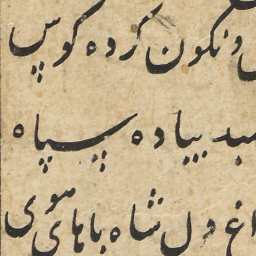 و نکون کرده کوس
بد پیاده سپاه
اغ دل شاه باهای هوی